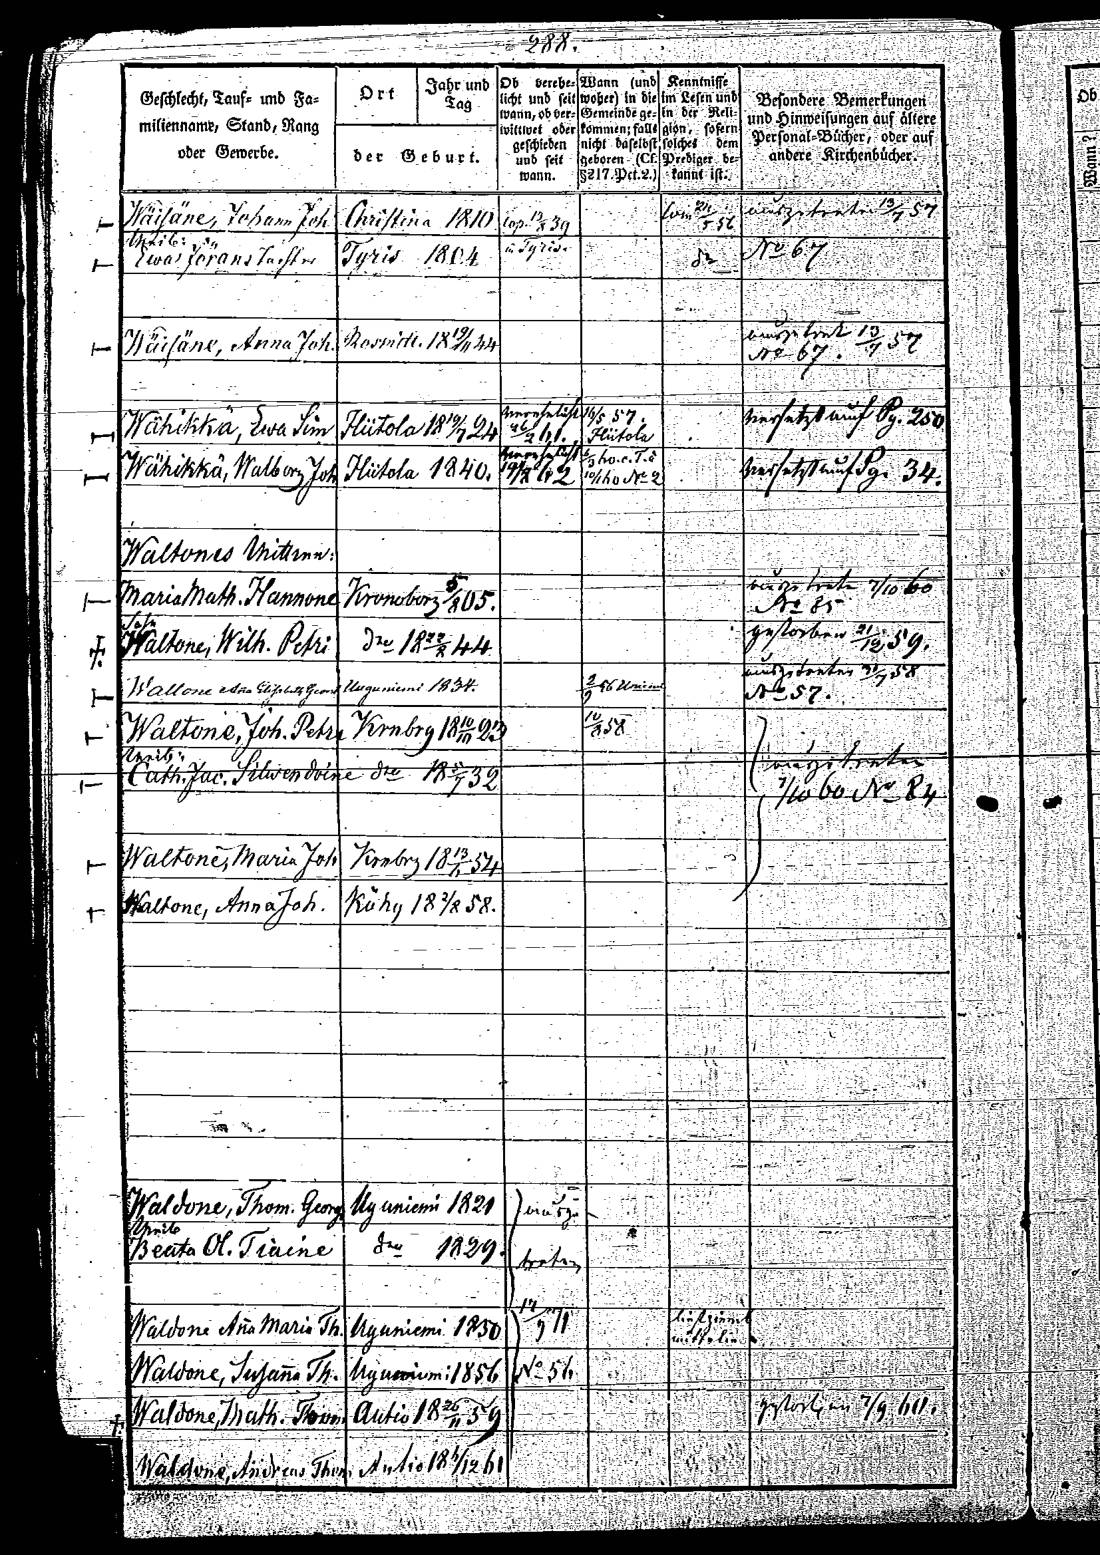 288.
Geschlecht, Tauf- und Fa-
milienname, Stand, Rang
oder Gewerbe.
Ort
Jahr und
Tag
der Geburt.
Ob verehe-
licht und seit
wann, ob ver-
wittwet oder
geschieden
und seit
wann.
Wann (und
woher) in die
Gemeinde ge-
kommen; falls
nicht daselbst
geboren (Cf.
§217. Pct. 2.)
Kenntnisse
im Lesen und
in der Reli-
gion, sofern
solches dem
Prediger be-
kannt ist.
Besondere Bemerkungen
und Hinweisungen auf ältere
Personal-Bücher, oder auf
andere Kirchenbücher.
Ob
Wann?
Wäisäne, Johann Joh. Christina 1810 cop. 13/8 39 ausgetreten 13/7 57
Weib:
Ewa Jörans Tochter Tyris 1804 No 67
Wäisäne, Anna Joh. 18 19/11 44 ausgetret. 13/7 57
No 67.
Wähikkä, Ewa Sim Hiitola 18 19/7 24 verehelicht 26/2 61. 14/5 57. Hiitola versetzt auf Pg. 250
Wähikkä, Walborg Joh Hiitola 1840. verehelicht 62 10/1 60 No 2 versetzt auf Pg. 34.
Waltones Wittwe:
Maria Math. Hannone Kronoborg 5/8 05. ausgetreten 7/10 60
No 85
Sohn
Waltone, Wilh. Petri dto 18 22/2 44 gestorben 21/12 59.
Waltone Aña Elisabeth Georg Uguniemi 1834. 2/9 56 ausgetreten 21/7 58
No 57.
Waltone, Joh. Petri Krnbrg 18 10/10 23 10/8 58
Weib:
Cath. Jac. Silwendoine dto 18 5/7 32 ausgetreten
7/10 60 No 84
Waltone, Maria Joh Krnbrg 18 13/11 54
Waltone, Anna Joh. Kähy 18 2/8 58.
Waldone, Thom. Georg Uguniemi 1821 ausge-
Weib
Beata Ol. Tiaine dto 1829. treten
Waldone Aña Maria Th. Uguniemi 1850 17/9 71
Waldone, Susaña Th. Uguniemi 1856 No 56
Waldone, Math. Thom. Autio 18 26/11 59 gestorben 7/9 60.
Waldone, Andreas Thom Autio 18 4/12 61